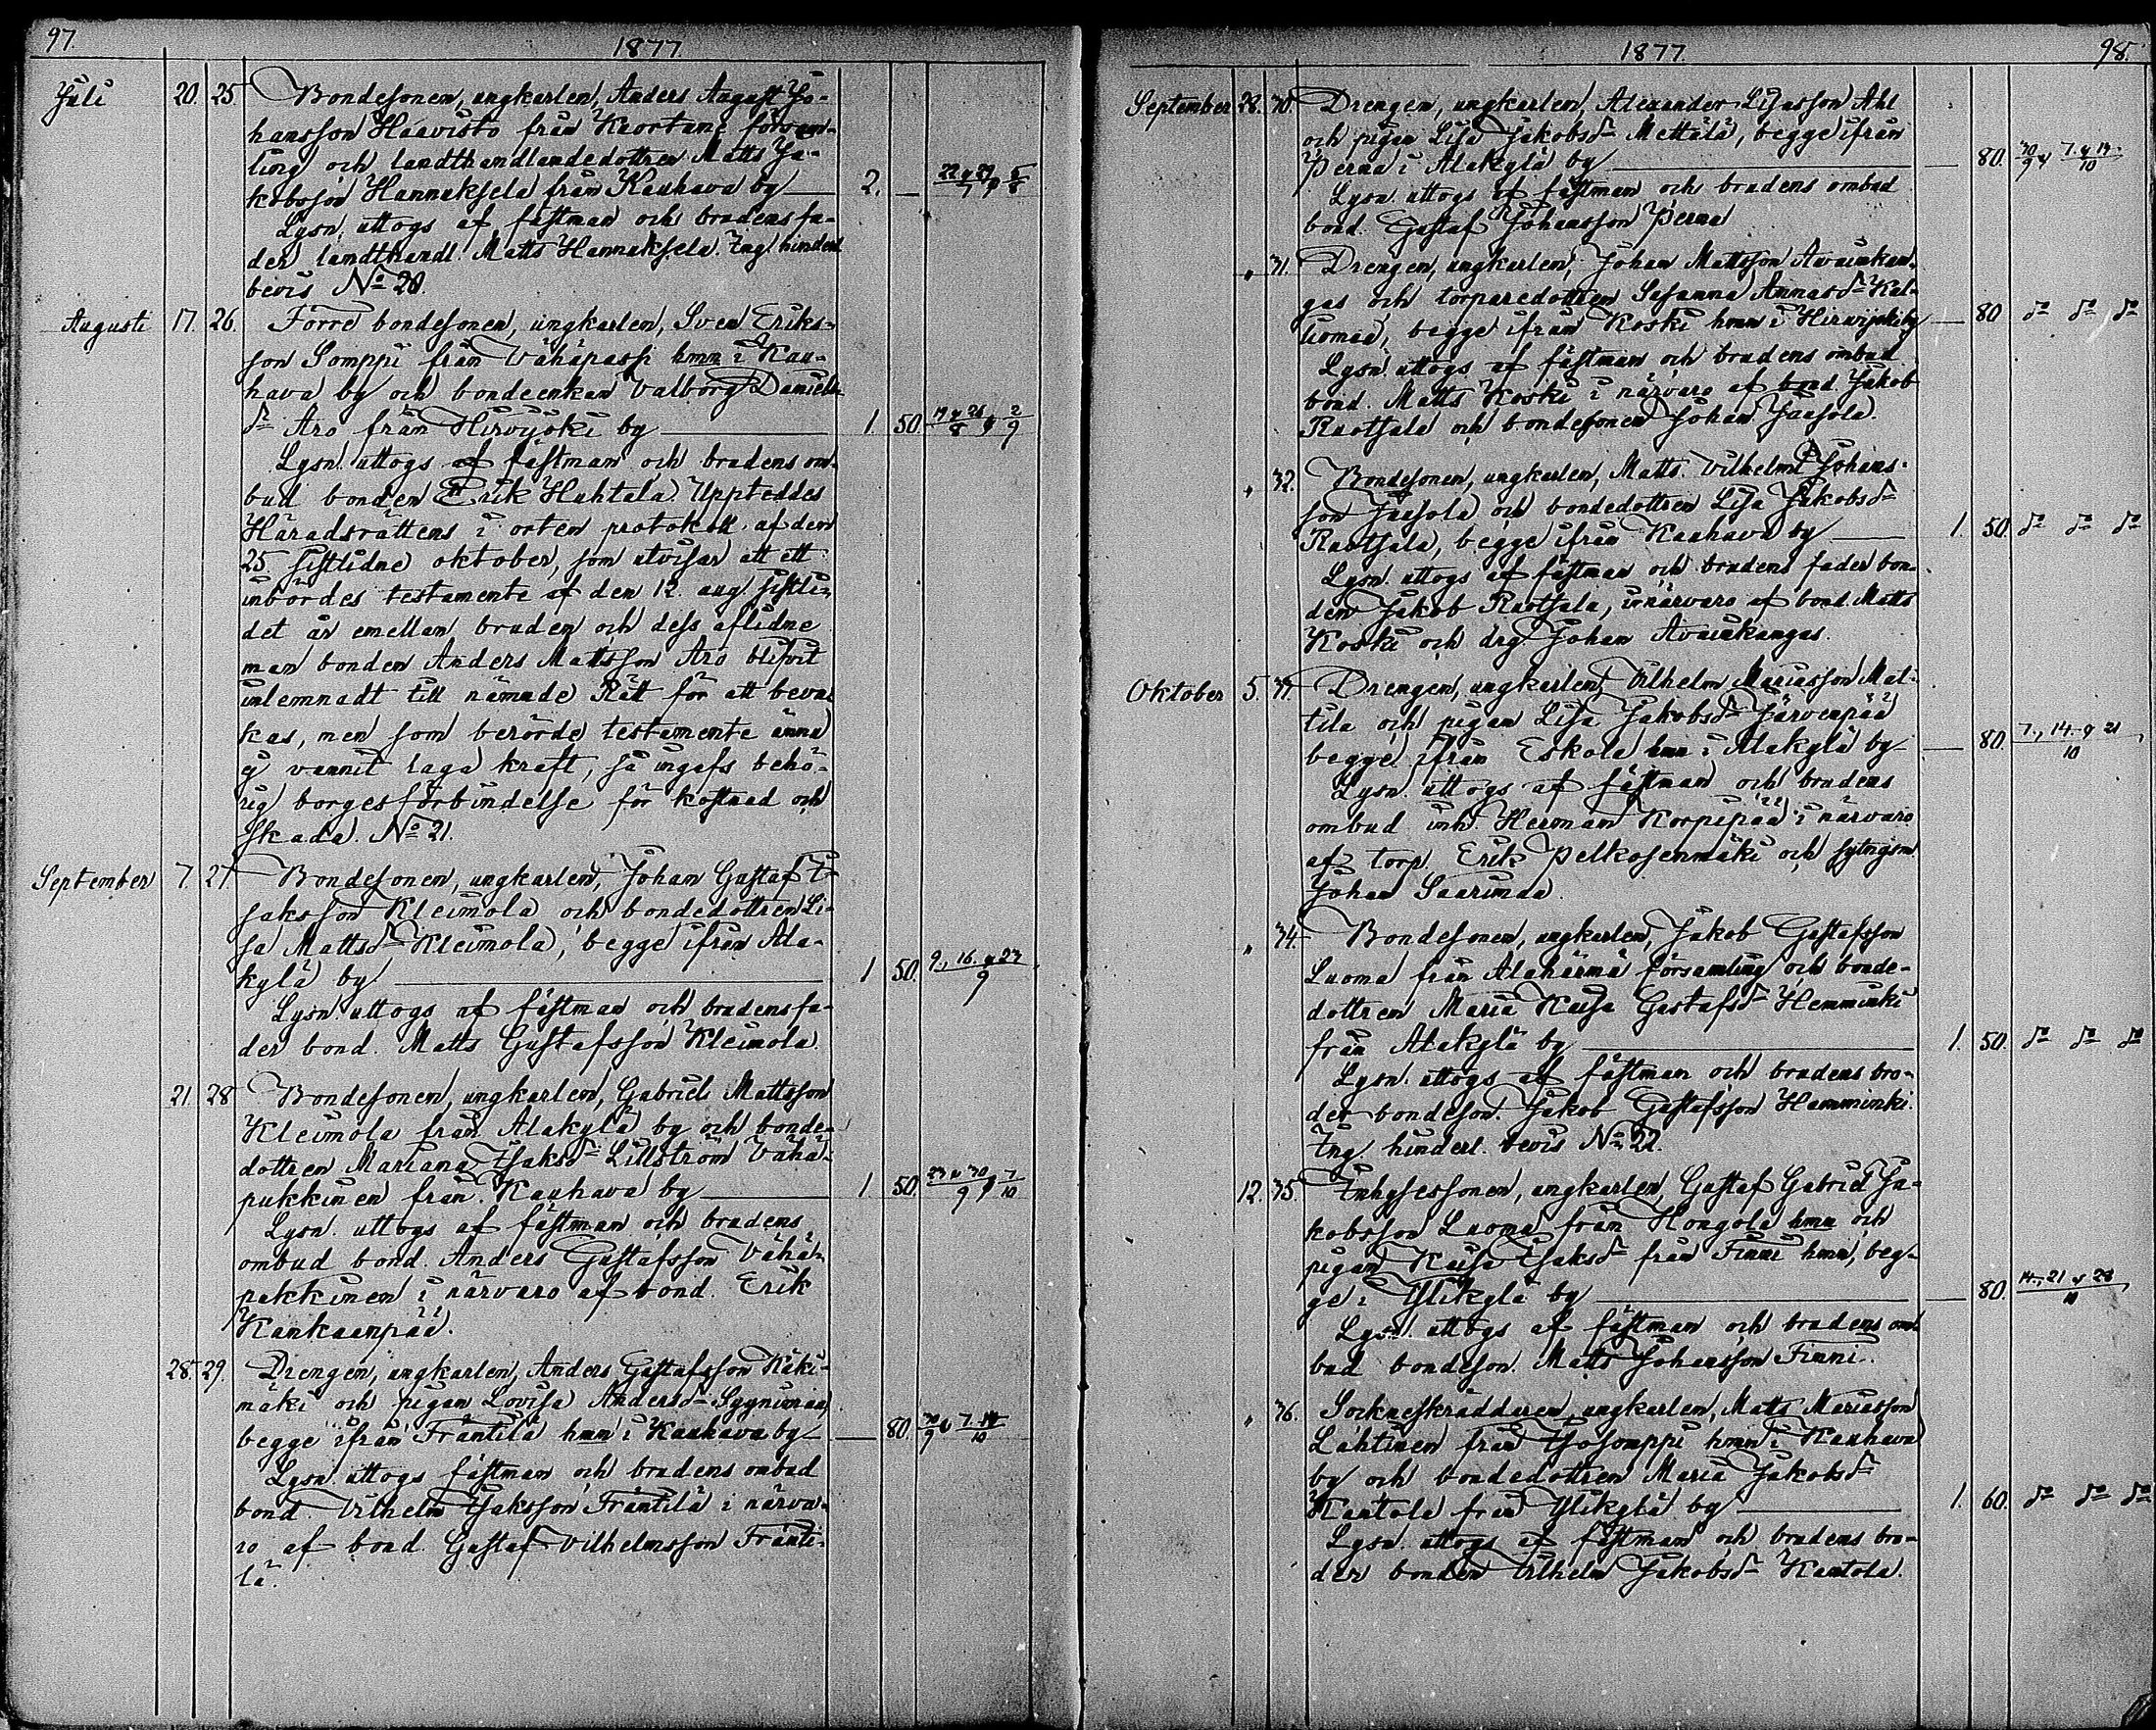 97.
1877.
Juli 20. 25. Bondesonen, ungkarlen, Anders August Jo-
hansson Haavisto från Kuortane försam-
ling och landthandlandedottren Matts Ja-
kobsson Hannuksela från Kauhava by — 2. — 22 o 29/7 o 5/8
Lysn. uttogs af fästman och brudens fa-
der landthandl. Matts Hannuksela. Ing. hinderl.
bevis No 20.
Augusti 17. 26. Förre bondesonen, ungkarlen, Sven Eriks-
son Somppi från Vähäpassi hmn i Kau-
hava by och bondeenkan Valborg Daniels
dr Aro från Hirvijoki by — 1. 50. 19 o 26/8 o 2/9
Lysn. uttogs af fästman och brudens om-
bud bonden Erik Huhtala. Uppteddes
Häradsrättens i orten protokoll af den
25. sistlidne oktober, som utvisar att ett
inbördes testamente af den 12. aug. sistli-
det år emellan bruden och dess aflidne
man bonden Anders Mattsson Aro blifvit
inlemnadt till nämnde Rätt för att beva-
kas, men som berörde testamente ännu
ej vunnit laga kraft, så ingafs behö-
rig borgesförbindelse för kostnad och
skada. No 21.
September 7. 27. Bondesonen, ungkarlen, Johan Gustaf I-
saksson Kleimola och bondedottren Li-
sa Mattsdr Kleimola, begge ifrån Ala-
kylä by — 1. 50. 9., 16. o 23/9
Lysn. uttogs af fästman och brudens fa-
der bond. Matts Gustafsson Kleimola.
21. 28. Bondesonen, ungkarlen, Gabriel Mattsson
Kleimola från Alakylä by och bonde-
dottren Mariana Isaksdr Lillström Vähä-
pukkinen från Kauhava by — 1. 50. 23 o 30/9 o 7/10
Lysn. uttogs af fästman och brudens
ombud bond. Anders Gustafsson Vähä-
pukkinen i närvaro af bond. Erik
Kankaanpää.
28. 29. Drengen, ungkarlen, Anders Gustafsson Käki-
mäki och pigan Lovisa Andersdr
begge ifrån Fräntilä hmn i Kauhava by — 80. 30/9 o 7. 14/10
Lysn. uttogs fästman och brudens ombud
bond. Vilhelm Isaksson Fräntilä i närva-
ro af bond. Gustaf Vilhelmsson Fränti-
lä.
1877.
98.
September 28. 30. Drengen, ungkarlen, Alexander Lisasson Ahl
och pigan Lisa Jakobsdr Mettälä, begge ifrån
Perna i Alakylä by — 80. 30/9 o 7. o 14/10
Lysn. uttogs af fästman och brudens ombud
bond. Gustaf Johansson Perna
" 31. Drengen, ungkarlen, Johan Mattsson Avainkan-
gas och torparedottren Susanna Annasdr Kal-
liomaa, begge ifrån Koski hmn i Hirvijoki by — 80 do do do
Lysn. uttogs af fästman och brudens ombud
bond. Matts Koski i närvaro af bond. Jakob
Ruotsala och bondesonen Johan Jaasola.
" 32. Bondesonen, ungkarlen, Matts Vilhelm Johans-
son Jaasola och bondedottren Lisa Jakobsdr
Ruotsala, begge ifrån Kauhava by — 1. 50. do do do
Lysn. uttogs af fästman och brudens fader bon-
den Jakob Ruotsala, i närvaro af bond. Matts
Koski och drg. Johan Avainkangas.
Oktober 5. 33. Drengen, ungkarlen, Vilhelm Mariasson Mat-
tila och pigan Lisa Jakobsdr Järvenpää
begge ifrån Eskola hmn i Alakylä by — 80. 7., 14. o 21/10
Lysn. uttogs af fästman och brudens
ombud inh. Herman Korpipää i närvaro
af torp. Erik Pelkosenmäki och sytngsm.
Johan Saarimaa.
" 34. Bondesonen, ungkarlen, Jakob Gustafsson
Luoma från Alahärmä församling och bonde-
dottren Maria Kaisa Gustafsdr Hemminki
från Alakylä by — 1. 50. do do do
Lysn. uttogs af fästman och brudens bro-
der bondeson. Jakob Gustafsson Hemminki.
Ing. hinderl. bevis No 22.
12. 35. Inhysessonen, ungkarlen, Gustaf Gabriel Ja-
kobsson Luoma från Kongola hmn och
pigan Kaisa Isaksdr från Finni hmn, beg-
ge i Ylikylä by — 80. 14., 21 o 28/10
Lysn. uttogs af fästman och brudens om-
bud bondeson. Matts Johansson Finni.
" 36. Sockneskräddaren, ungkarlen, Matts Mariasson
Lahtinen från Isosomppi hmn i Kauhava
by och bondedottren Maria Jakobsdr
Kantola från Ylikylä by — 1. 60. do do do
Lysn. uttogs af fästman och brudens bro-
der bonden Vilhelm Jakobsdr Kantola.